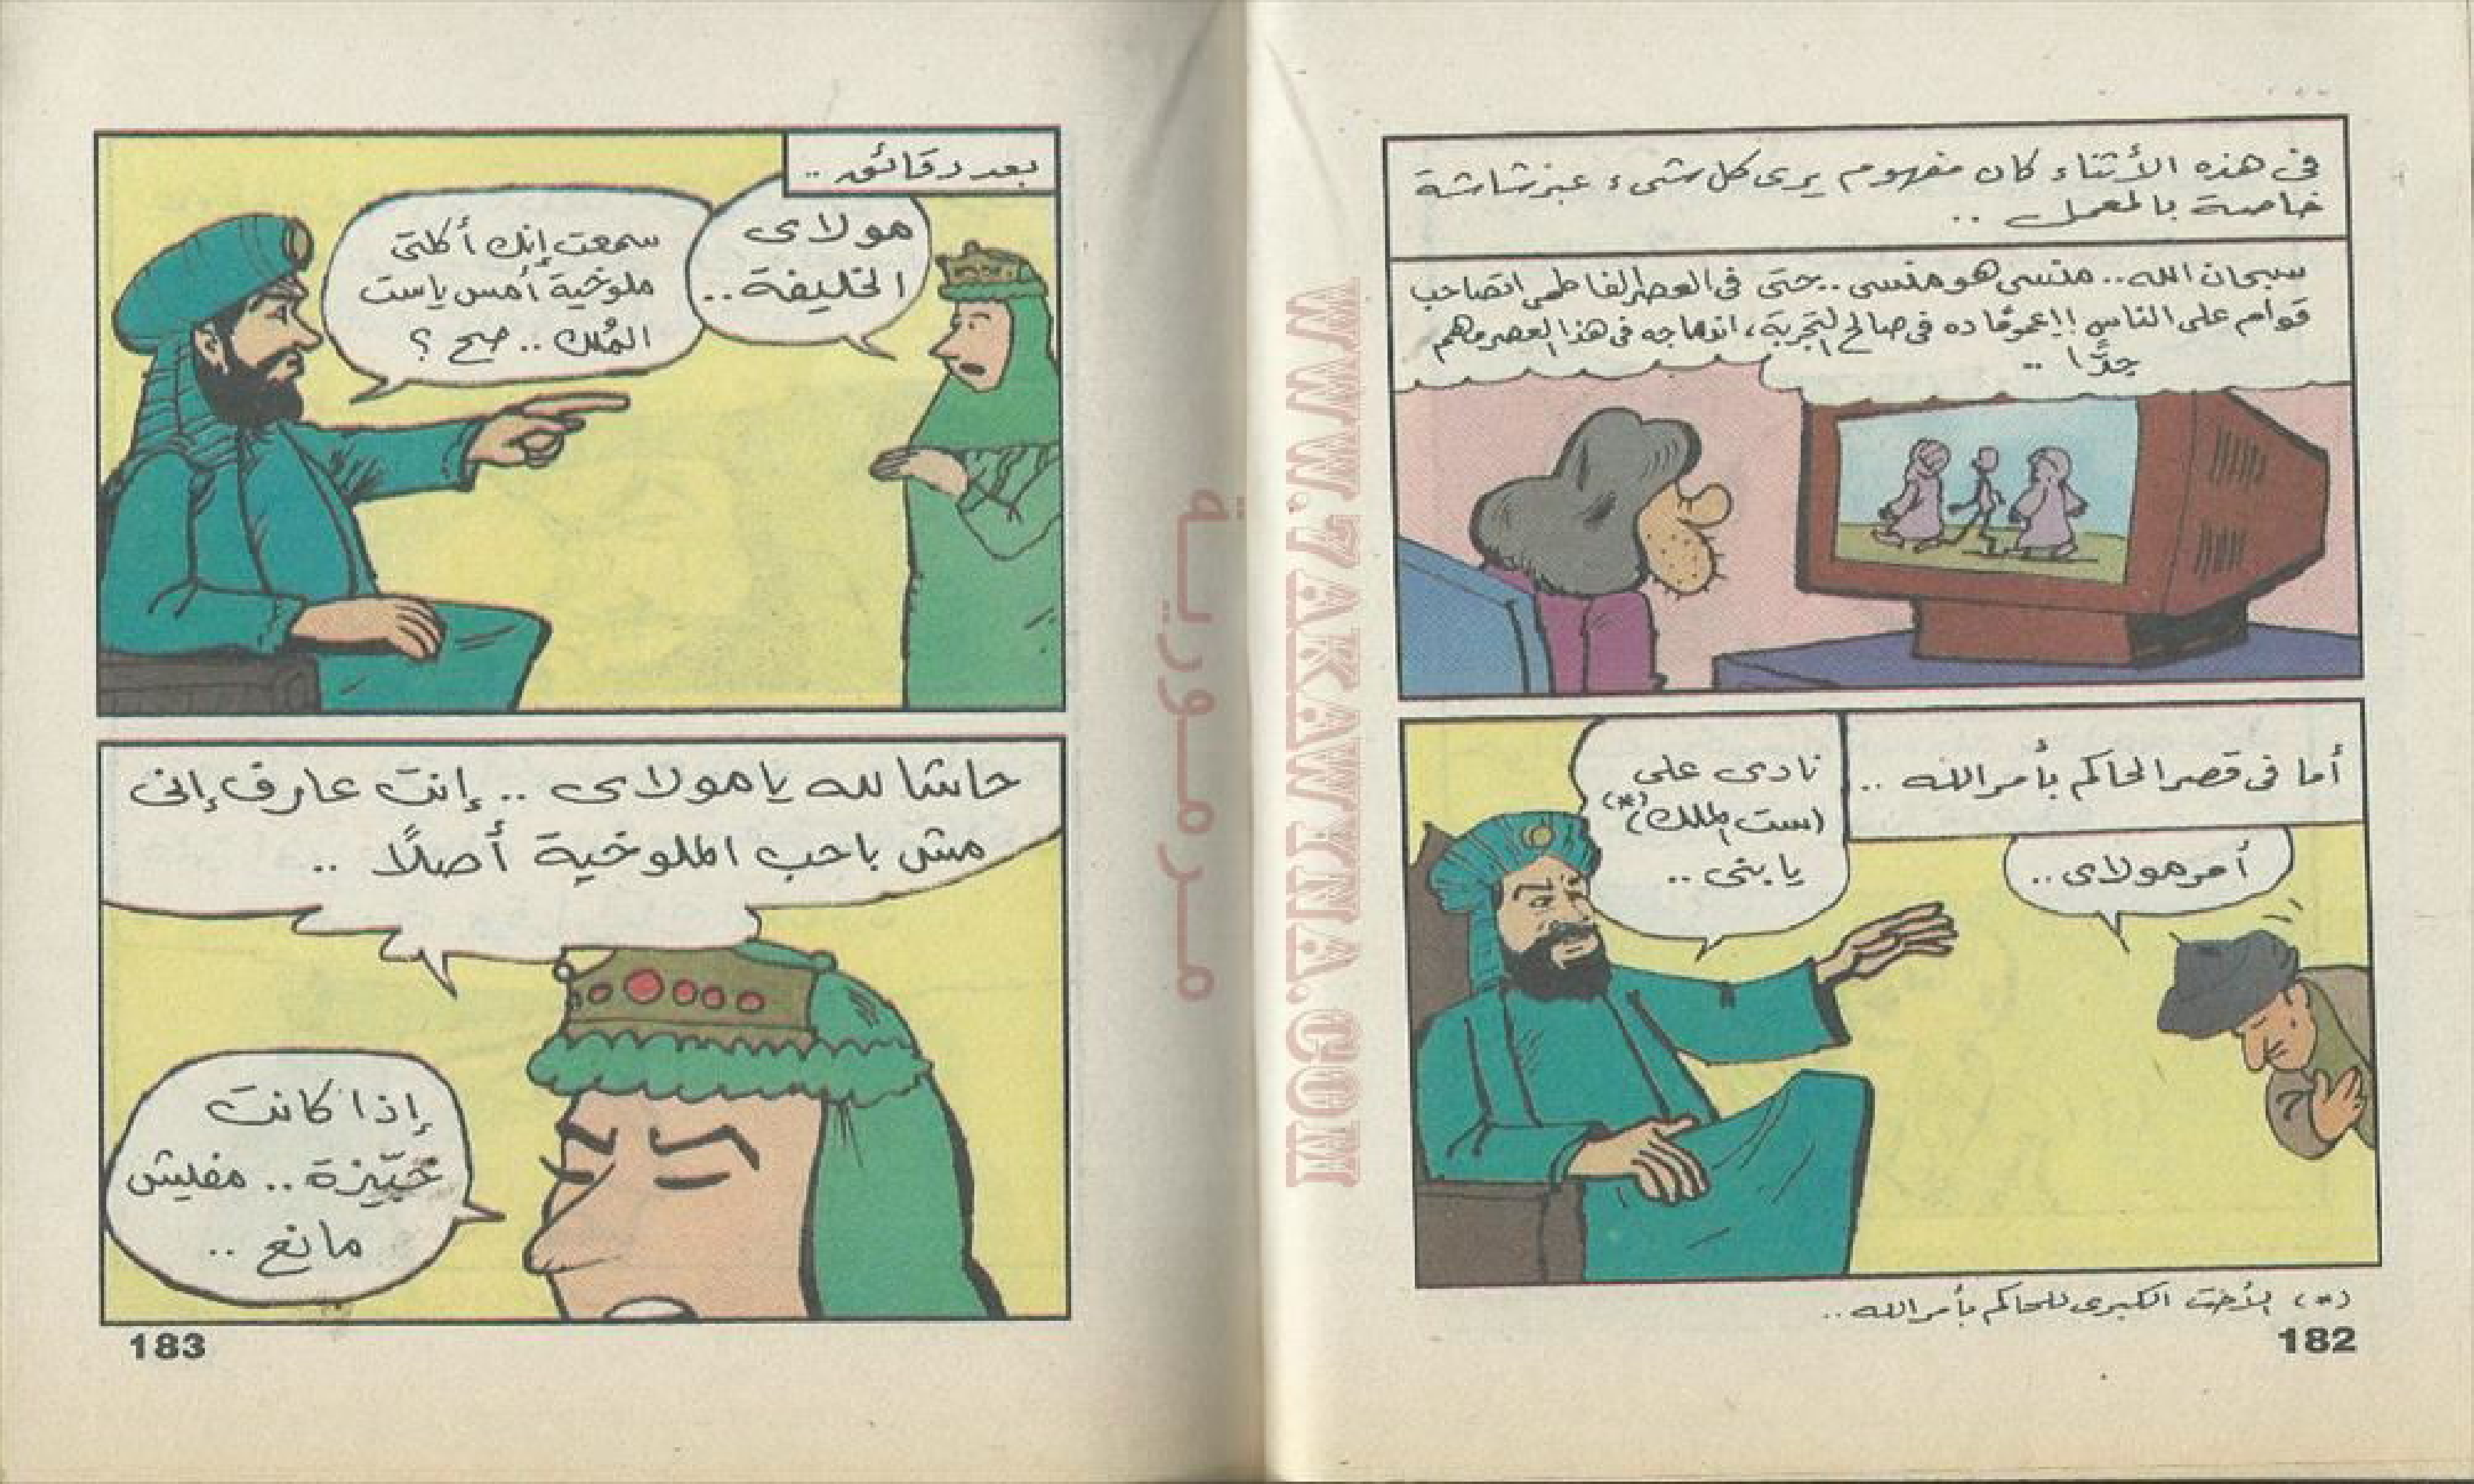 فى هذه الأثناء كان مفهوم يرى كل شىء عبر شاشة
خاصة بالمعمل ..
سبحان الله.. منسى هو منسى .. حتى فى العصر الفاطمى اتصاحب
قوام على الناس !! عمومًا ده فى صالح التجربة، اندماجه فى هذا العصر مهم
جدًا ..
أما فى قصر الحاكم بأمر الله ..
نادى على
(ست الملك)(*)
يا بنى ..
أمر مولاى ..
(*) الأخت الكبرى للحاكم بأمر الله ..
182
WWW.7AKAWEENA.COM
مرمورية
بعد دقائق ..
مولاى
الخليفة ..
سمعت إنك أكلتى
ملوخية أمس يا ست
المُلك .. صح ؟
حاشا لله يا مولاى .. إنت عارف إنى
مش باحب الملوخية أصلًا ..
إذا كانت
خبّيزة .. مفليش
مانع ..
183